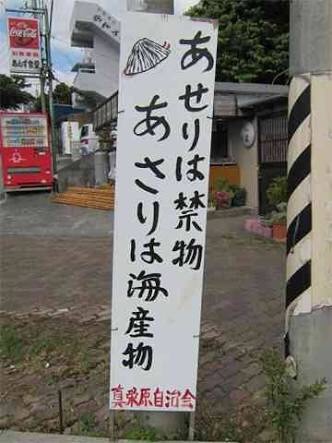 あせりは禁物
あさりは海産物
真栄原自治会
Coca-Cola